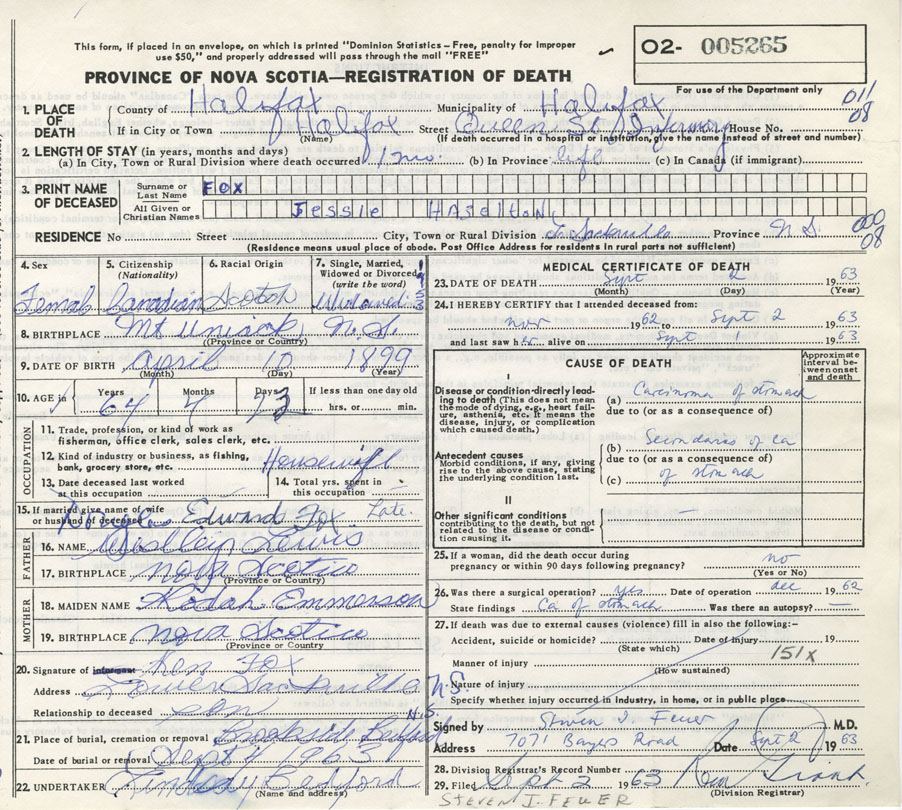 This form, if placed in an envelope, on which is printed "Dominion Statistics – Free, penalty for improper
use $50," and properly addressed will pass through the mail "FREE"
O2- 005265
PROVINCE OF NOVA SCOTIA—REGISTRATION OF DEATH
For use of the Department only
1. PLACE OF DEATH
County of Halifax Municipality of Halifax 011 08
If in City or Town Halifax Street Queen St. Infirmary House No.
(Name) (If death occurred in a hospital or institution, give its name instead of street and number)
2. LENGTH OF STAY (in years, months and days)
(a) In City, Town or Rural Division where death occurred 1 mo. (b) In Province life (c) In Canada (if immigrant)
3. PRINT NAME OF DECEASED
Surname or Last Name FOX
All Given or Christian Names Jessie HAZELTON
RESIDENCE No Street City, Town or Rural Division Sackville Province N.S. 000 08
(Residence means usual place of abode. Post Office Address for residents in rural parts not sufficient)
4. Sex Female
5. Citizenship (Nationality) Canadian
6. Racial Origin Scotch
7. Single, Married, Widowed or Divorced (write the word) Widowed
8. BIRTHPLACE Mt Uniack N.S.
(Province or Country)
9. DATE OF BIRTH April 10 1899
(Month) (Day) (Year)
10. AGE in Years 64 Months 4 Days 23 If less than one day old hrs. or min.
OCCUPATION
11. Trade, profession, or kind of work as fisherman, office clerk, sales clerk, etc.
12. Kind of industry or business, as fishing, bank, grocery store, etc. Housewife
13. Date deceased last worked at this occupation
14. Total yrs. spent in this occupation
15. If married give name of wife or husband of deceased Edward Fox Late.
FATHER
16. NAME Lewis
17. BIRTHPLACE Nova Scotia
(Province or Country)
MOTHER
18. MAIDEN NAME Emmerson
19. BIRTHPLACE Nova Scotia
(Province or Country)
20. Signature of informant Ken Fox
Address Lower Sackville N.S.
Relationship to deceased son
21. Place of burial, cremation or removal Brookside Bedford N.S.
Date of burial or removal Sept 1963
22. UNDERTAKER Bedford
(Name and address)
MEDICAL CERTIFICATE OF DEATH
23. DATE OF DEATH Sept 2 1963
(Month) (Day) (Year)
24. I HEREBY CERTIFY that I attended deceased from:
Nov 1962 to Sept 2 1963
and last saw her alive on Sept 1 1963
CAUSE OF DEATH
Approximate interval between onset and death
I
Disease or condition-directly leading to death (This does not mean the mode of dying, e.g., heart failure, asthenia, etc. It means the disease, injury, or complication which caused death.)
(a) Carcinoma of stomach
due to (or as a consequence of)
Antecedent causes
Morbid conditions, if any, giving rise to the above cause, stating the underlying condition last.
(b) Secondaries of Ca
due to (or as a consequence of)
(c) of stomach
II
Other significant conditions
contributing to the death, but not related to the disease or condition causing it. —
25. If a woman, did the death occur during pregnancy or within 90 days following pregnancy? no
(Yes or No)
26. Was there a surgical operation? yes Date of operation dec 1962
State findings Ca of stomach Was there an autopsy? —
27. If death was due to external causes (violence) fill in also the following:–
Accident, suicide or homicide? Date of injury 19
(State which) 151X
Manner of injury
(How sustained)
Nature of injury
Specify whether injury occurred in industry, in home, or in public place
Signed by Steven J. Feuer M.D.
Address 7071 Bayers Road Date Sept 2 1963
28. Division Registrar's Record Number
29. Filed Sept 3 1963
(Division Registrar)
STEVEN J. FEUER